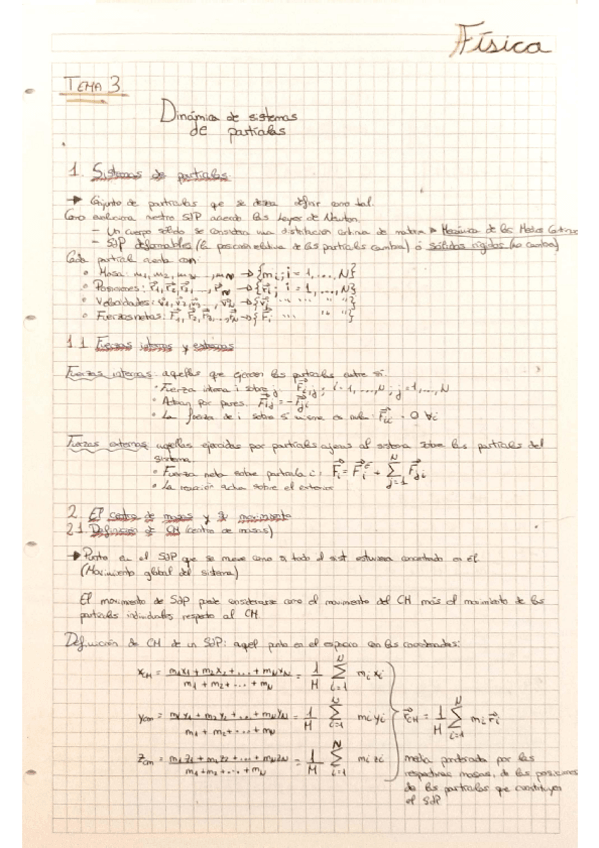 Física
TEMA 3
Dinámica de sistemas
de partículas
1. Sistemas de partículas
→ Conjunto de partículas que se desea definir como tal.
Como evoluciona nuestro SDP acuerdo las Leyes de Newton.
– Un cuerpo sólido se considera una distribución continua de materia → Mecánica de los Medios Continuos
– SDP deformables (la posición relativa de las partículas cambia) o sólidos rígidos (no cambia)
Cada partícula cuenta con:
• Masa: m₁, m₂, m₃, ..., m_N → {m_i; i = 1, ..., N}
• Posiciones: r⃗₁, r⃗₂, r⃗₃, ..., r⃗_N → {r⃗_i; i = 1, ..., N}
• Velocidades: v⃗₁, v⃗₂, v⃗₃, ..., v⃗_N → {v⃗_i " " " "}
• Fuerzas netas: F⃗₁, F⃗₂, F⃗₃, ..., F⃗_N → {F⃗_i " " " "}
1.1 Fuerzas internas y externas
Fuerzas internas: aquellas que ejercen las partículas entre sí.
• Fuerza interna i sobre j F⃗_i,j; i = 1, ..., N; j = 1, ..., N
• Actúan por pares. F⃗_ij = -F⃗_ji
• La fuerza de i sobre sí misma es nula. F⃗_ii = 0 ∀i
Fuerzas externas: aquellas ejercidas por partículas ajenas al sistema sobre las partículas del
sistema.
• Fuerza neta sobre partícula i: F⃗_i = F⃗_i^E + Σ_{j=1}^{N} F⃗_ji
• La reacción actúa sobre el exterior
2. El centro de masas y su movimiento
2.1. Definición de CM (centro de masas)
→ Punto en el SDP que se mueve como si todo el sist. estuviera concentrado en él
(Movimiento global del sistema)
El movimiento de SDP puede considerarse como el movimiento del CM más el movimiento de las
partículas individuales respecto al CM.
Definición de CM de un SDP: aquel punto en el espacio con las coordenadas:
x_CM = (m₁x₁ + m₂x₂ + ... + m_N x_N) / (m₁ + m₂ + ... + m_N) = 1/M Σ_{i=1}^{N} m_i x_i
y_CM = (m₁y₁ + m₂y₂ + ... + m_N y_N) / (m₁ + m₂ + ... + m_N) = 1/M Σ_{i=1}^{N} m_i y_i
r⃗_CM = 1/M Σ_{i=1}^{N} m_i r⃗_i
z_CM = (m₁z₁ + m₂z₂ + ... + m_N z_N) / (m₁ + m₂ + ... + m_N) = 1/M Σ_{i=1}^{N} m_i z_i
media ponderada por las
respectivas masas, de las posiciones
de las partículas que constituyen
el SDP